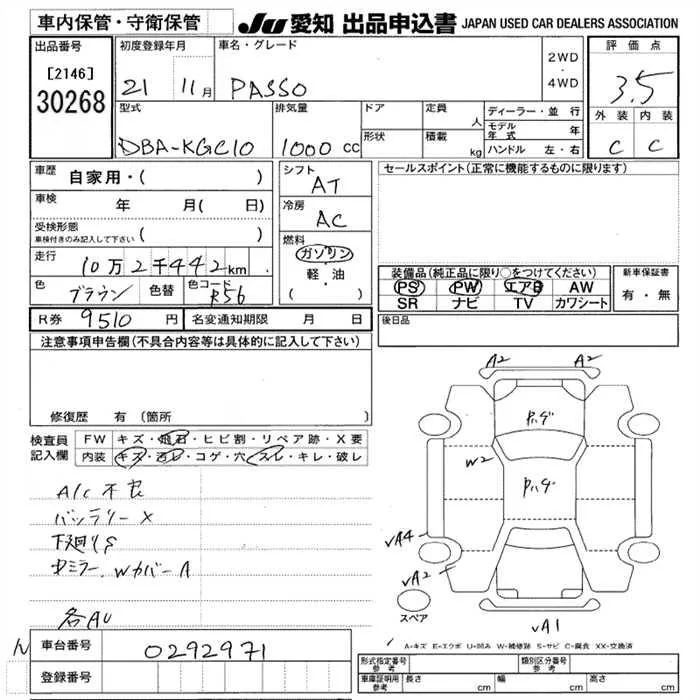 車内保管・守衛保管
JU 愛知 出品申込書 JAPAN USED CAR DEALERS ASSOCIATION
出品番号 初度登録年月 車名・グレード 2WD・4WD 評価点
[2146]
30268
21 11月 PASSO 3.5
型式 排気量 ドア 定員 人 ディーラー・並行
モデル年式 年
外装 内装
DBA-KGC10 1000cc 形状 積載 kg ハンドル 左・右 C C
車歴 自家用・( ) シフト AT セールスポイント(正常に機能するものに限ります)
車検 年 月( 日) 冷房 AC
受検形態 ( )
車検付きのみ記入して下さい
燃料 ガソリン
軽・油
( )
走行 10万2千442km
色 ブラウン 色替 色コード R56
装備品(純正品に限り○をつけてください) 新車保証書
PS PW エアB AW 有・無
SR ナビ TV カワシート
R券 9510円 名変通知期限 月 日 後日品
注意事項申告欄(不具合内容等は具体的に記入して下さい)
修復歴 有(箇所
検査員記入欄 FW キズ・飛石・ヒビ割・リペア跡・X要
内装 キズ・汚レ・コゲ・穴・スレ・キレ・破レ
A/C不良
バッテリーX
下廻りS
Wカバー A
各AU
A2 A2
Pハゲ
W2
Pハゲ
VA4
VA2
スペア
VA1
A・キズ E・エクボ U・凹み W・補修跡 S・サビ C・腐食 XX・交換済
車台番号 0292971
登録番号
形式指定番号 参考 類別区分番号 参考
車庫証明用 参考 長さ cm 幅 cm 高さ cm